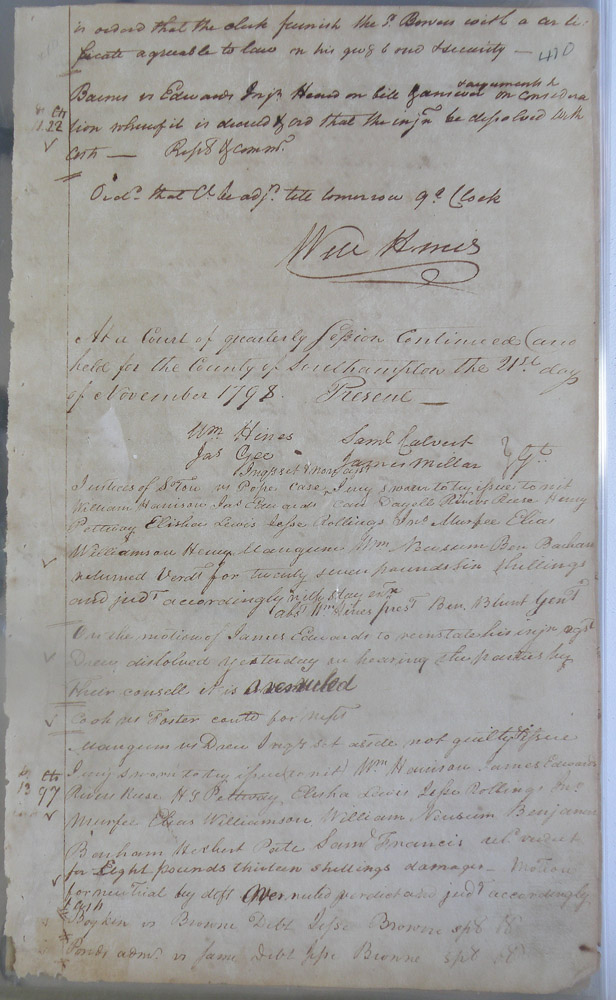 is ordered that the clerk furnish the sd Bowers with a certi-
ficate agreable to law on his give bond & security —
410
Barnes vs Edwards Injn Heard on bill & answer & arguments & on considera
tion whereof it is decreed & ord that the injn be dissolved with
Costs —
Ctts
1.22
Ordd that Ct be adjd till tomorrow 9 o Clock
Will Hines
At a Court of quarterly Session Continued and
held for the County of Southampton the 21st day
of November 1798. Present —
Wm Hines Saml Calvert
Jas Gee James Millar Gt
Justices of vs Pope case, Jury sworn to try issue to wit
William Harrison Jas Edwards Carr Rives Reese Henry
Pettway Elisha Lewis Jesse Rollings Jno Murfee Elias
Williamson Henry Mangum Wm Newsum Ben Barham
returned Verdt for twenty seven pounds six shillings
and judt accordingly
abst Wm Hines prest Ben Blunt Gent
On the motion of James Edwards to reinstate his injn agst
Drew dissolved yesterday on hearing the parties by
their counsell it is overruled
Cook vs Foster contd for
Mangum vs Drew set aside not guilty & issue
Ctts
13 97
Jury sworn to try issue (to wit) Wm Harrison James Edwards
Rives Reese Hy Pettway Elisha Lewis Jesse Rollings Jno
Murfee Elias Williamson William Newsum Benjamin
Barham Herbert Pate Saml Francis retd verdict
for Eight pounds thirteen shillings damages — Motion
for new trial by deft Overruled verdict and judt accordingly
Boykin vs Browne Debt Jesse Browne
Ponds admr vs Same Debt Jesse Browne